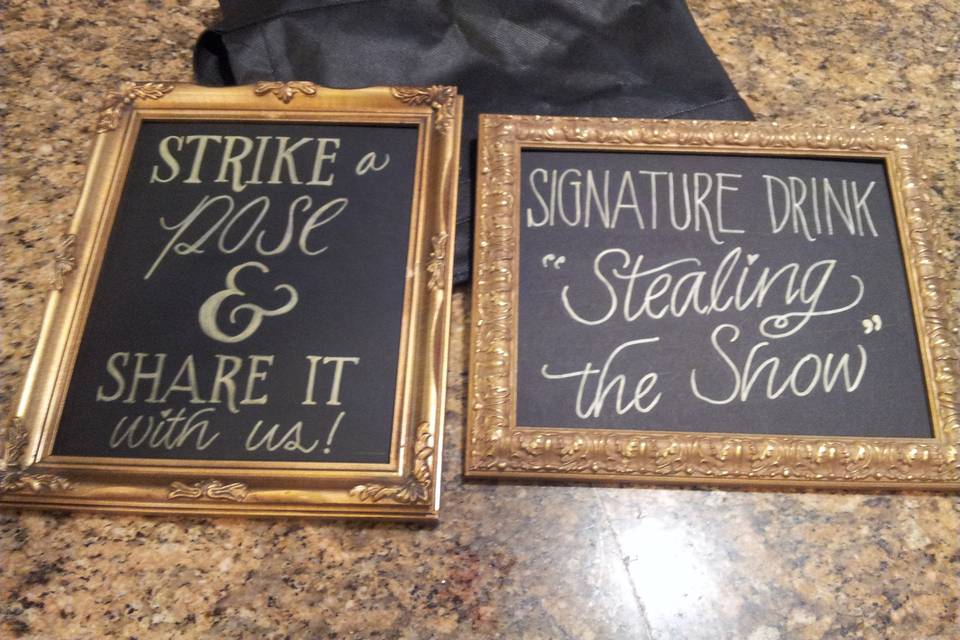 STRIKE a
pose
&
SHARE IT
with us!
SIGNATURE DRINK
“Stealing
the Show”